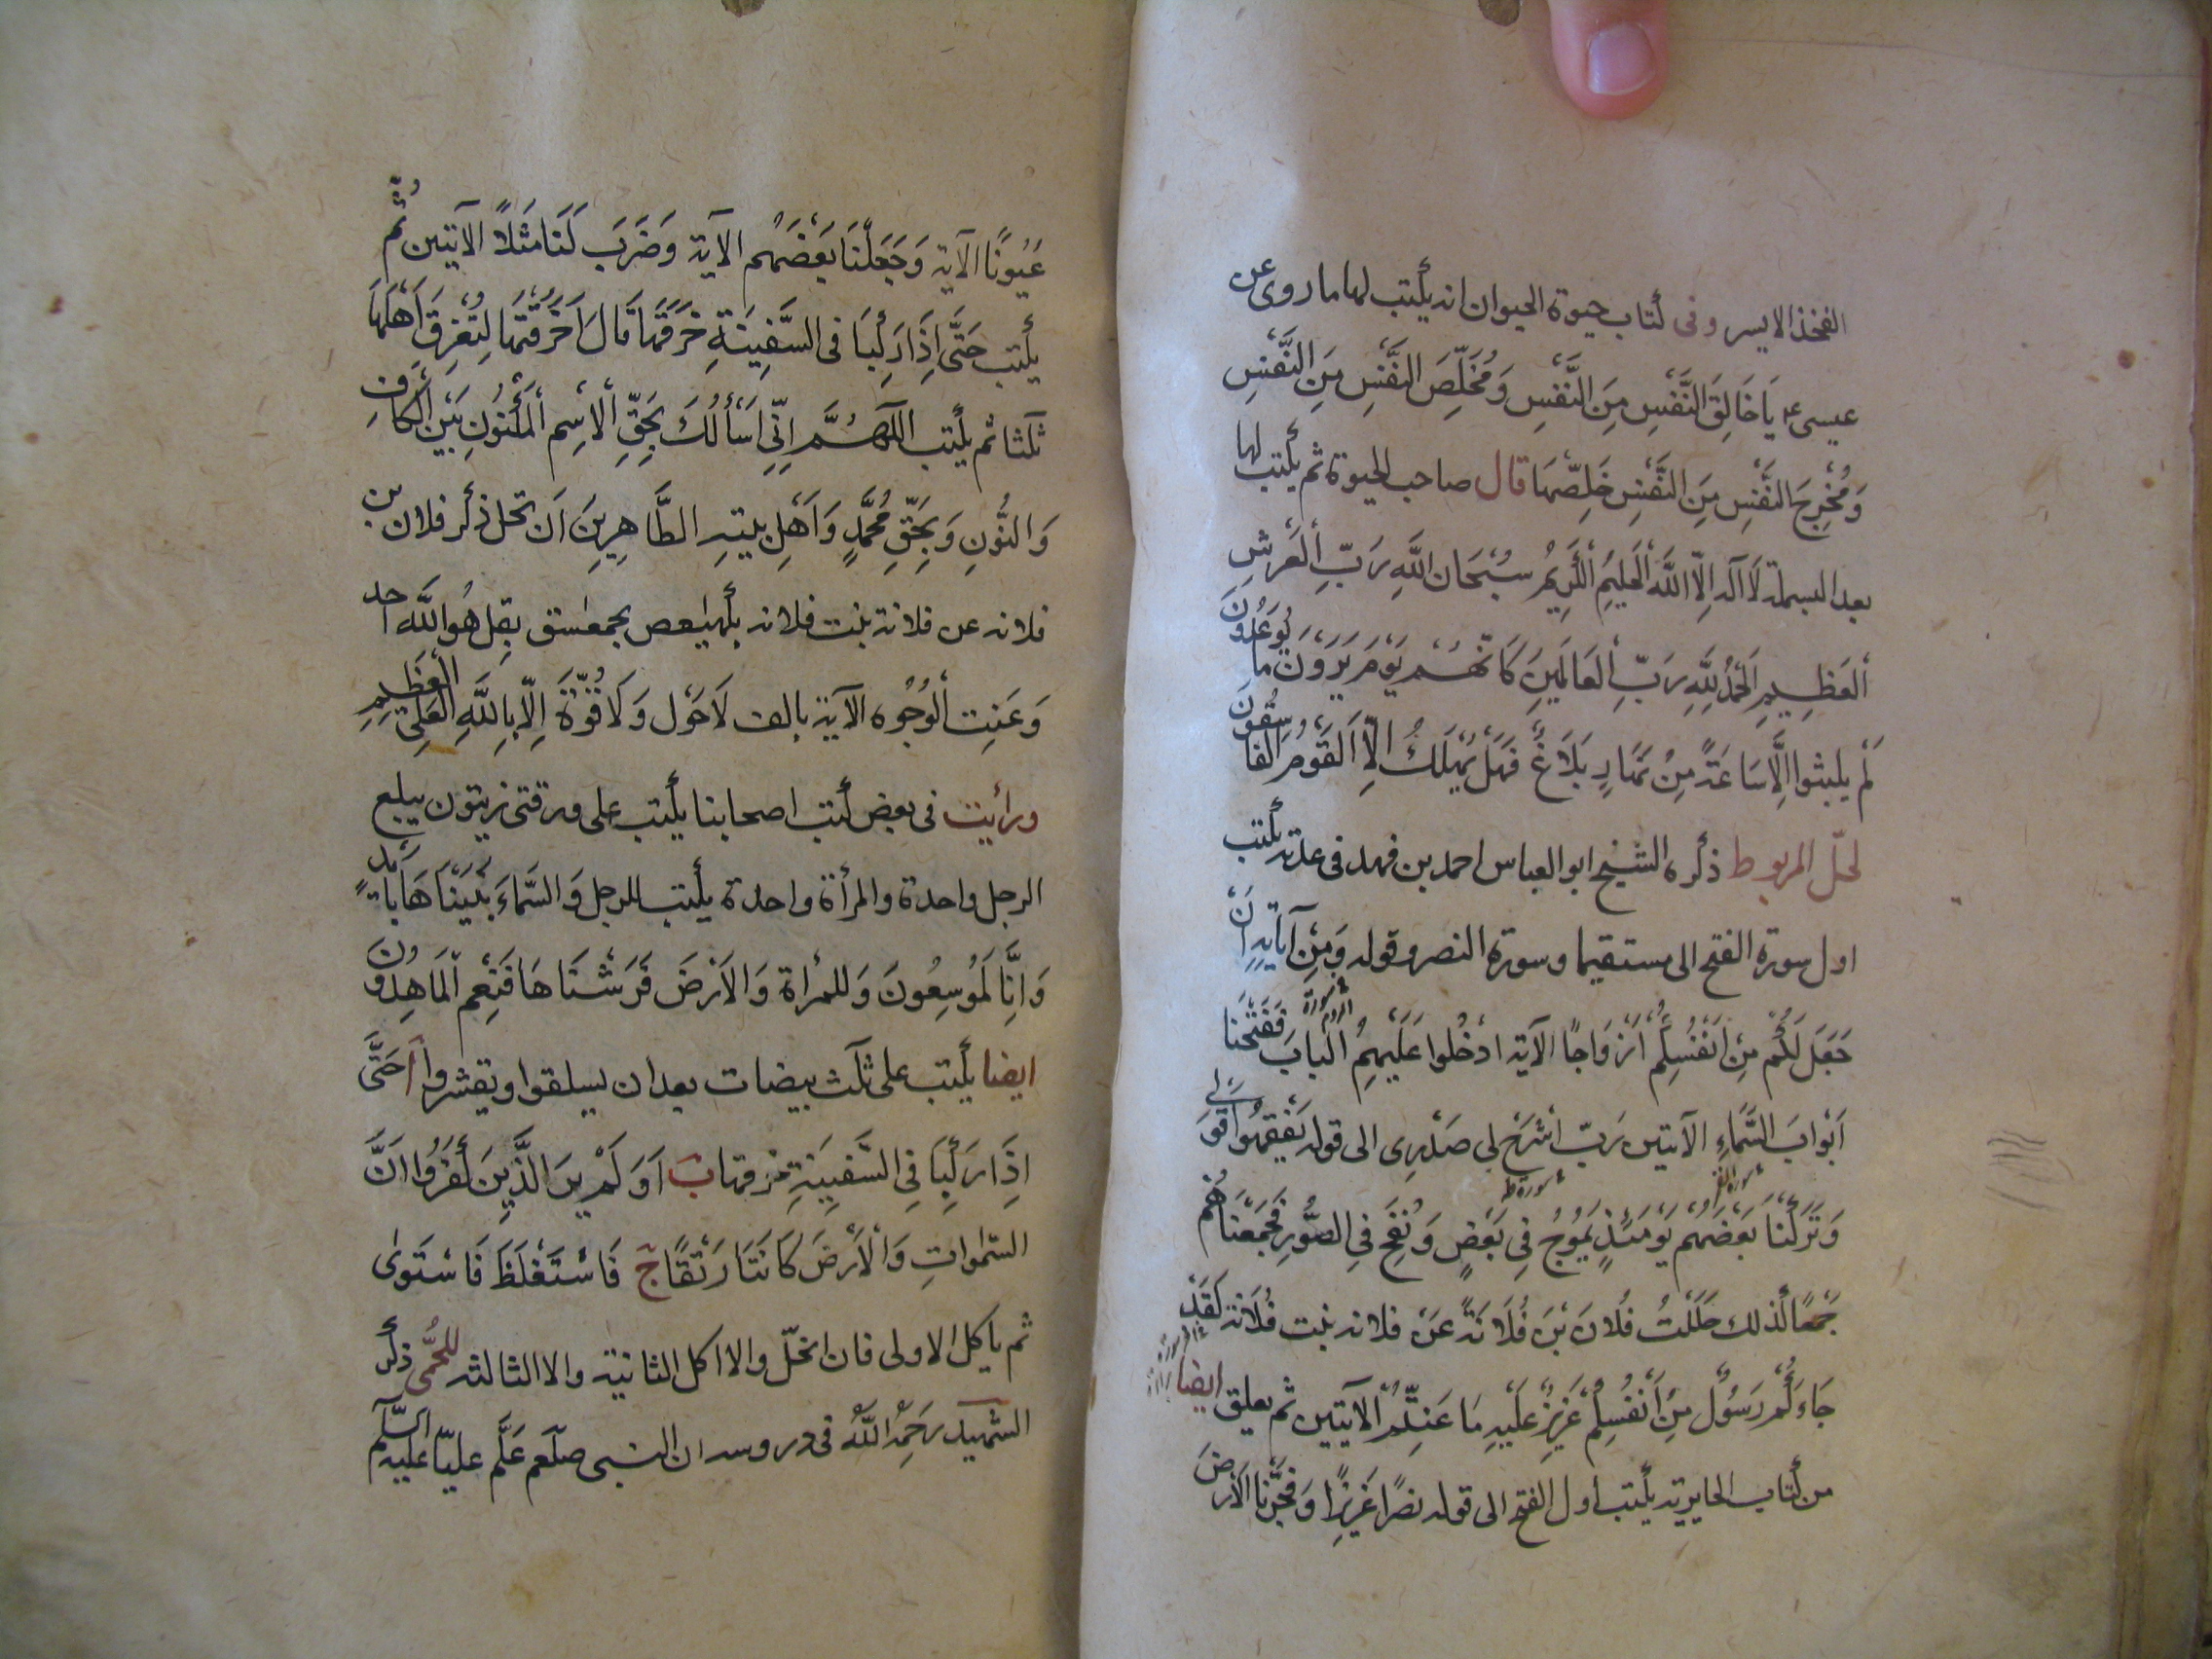 الفخذ الايسر وفى كتاب حيوة الحيوان انه يكتب لها ما روى عن
عيسى ع يَا خَالِقَ النَّفْسِ مِنَ النَّفْسِ وَمُخَلِّصَ النَّفْسِ مِنَ النَّفْسِ
وَمُخْرِجَ النَّفْسِ مِنَ النَّفْسِ خَلِّصْهَا قال صاحب الحيوة ثم يكتب لها
بعد البسملة لَا اله اِلّا اللَّهُ الْحَلِيمُ الْكَرِيمُ سُبْحَان اللَّهِ رَبِّ الْعَرْشِ
الْعَظِيمِ اَلْحَمْدُ لِلَّهِ رَبِّ الْعَالَمِينَ كَانَّهُمْ يَوْمَ يَرَوْنَ مَا يُوعَدُونَ
لَمْ يلبثوا اِلَّا سَاعَةً مِنْ نَهَارٍ بَلَاغٌ فَهَلْ يُهْلَكُ اِلّا الْقَوْمُ الْفَاسِقُونَ
لحلّ المربوط ذكره الشيخ ابو العباس احمد بن فهد فى عدته يكتب
اول سورة الفتح الى مستقيما وسورة النصر وقوله وَمِنْ آيَاتِهِ اَنْ
خَلَقَ لَكُمْ مِنْ اَنْفُسِكُمْ اَزْوَاجًا الآية ادْخُلُوا عَلَيْهِمُ الْبَابَ فَفَتَحْنَا
سورة الروم
اَبْوَابَ السَّمَاءِ الآيتين رَبِّ اشْرَحْ لى صَدْرِى الى قوله يَفْقَهُوا قَوْلى
سورة القمر سورة طه
وَتَرَكْنَا بَعْضَهُمْ يَوْمَئِذٍ يَمُوجُ فِى بَعْضٍ وَنُفِخَ فِى الصُّورِ فَجَمَعْنَاهُمْ
جَمْعًا كذلك حَلَلْتُ فُلَانَ بْنَ فُلَانَةَ عَنْ فلانه بنت فُلَانَة لَقَدْ
جَاءَكُمْ رَسُولٌ مِنْ اَنْفُسِكُمْ عَزِيزٌ عَلَيْهِ مَا عَنِتُّمْ الآيَتين ثم يعلق ايضا
من كتاب الحايرية يكتب اول الفتح الى قوله نصرًا عَزِيزًا وَفَجَّرْنَا الْاَرْضَ
عُيُونًا الآية وَجَعَلْنَا بَعْضَهُم الآية وَضَرَبَ لَنَا مَثَلًا الآيتين ثُمَّ
يكتب حَتَّى اِذَا رَكِبَا فى السَّفِينَةِ خَرَقَهَا قَالَ اَخَرَقْتَهَا لِتُغْرِقَ اَهْلَهَا
ثلثا ثم يكتب اللَّهُمَّ اِنِّى اَسْأَلُكَ بِحَقِّ الْاسِمِ الْمَكْنُونِ بَيْنَ الْكَافِ
وَالنُّونِ وَبِحَقِّ مُحَمَّدٍ وَاَهْلِ بيته الطَّاهِرِينَ اَن تحل ذكر فلان بن
فلانه عن فلانة بنت فلانه بكهيعص بحمعسق بِقُلْ هُوَ اللَّهُ احد
وَعَنِت الْوُجُوه الآية بالف لَا حَوْل وَلَا قُوَّةَ اِلّا بِاللَّهِ الْعَلِىِّ الْعَظِيمِ
ورأيت فى بعض كتب اصحابنا يكتب على ورقتى زيتون يبلع
الرجل واحدة والمرأة واحدة يكتب للرجل وَالسَّمَاءَ بَنَيْنَاهَا بِاَيْدٍ
وَاِنَّا لَمُوسِعُونَ وَللمراة وَالاَرْضَ فَرَشْنَاهَا فَنِعْمَ الْمَاهِدُونَ
ايضا يكتب على ثلث بيضات بعد ان يسلقوا ويقشروا آ حَتَّى
اِذَا رَكِبَا فِى السَّفِينَةِ خرقها ب اَوَلَمْ يرَ الَّذِينَ كَفَرُوا اَنَّ
السَّمٰوَاتِ وَالْاَرْضَ كَانَتَا رَتْقًا ج فَاسْتَغْلَظَ فَاسْتَوىٰ
ثم ياكل الاولى فان انحلّ والا اكل الثانية والا الثالثه للحمّى ذكر
الشهيد رَحِمَهُ اللَّهُ فى دروسه ان النبى صلعم عَلَّمَ عليّا عليه السّلم